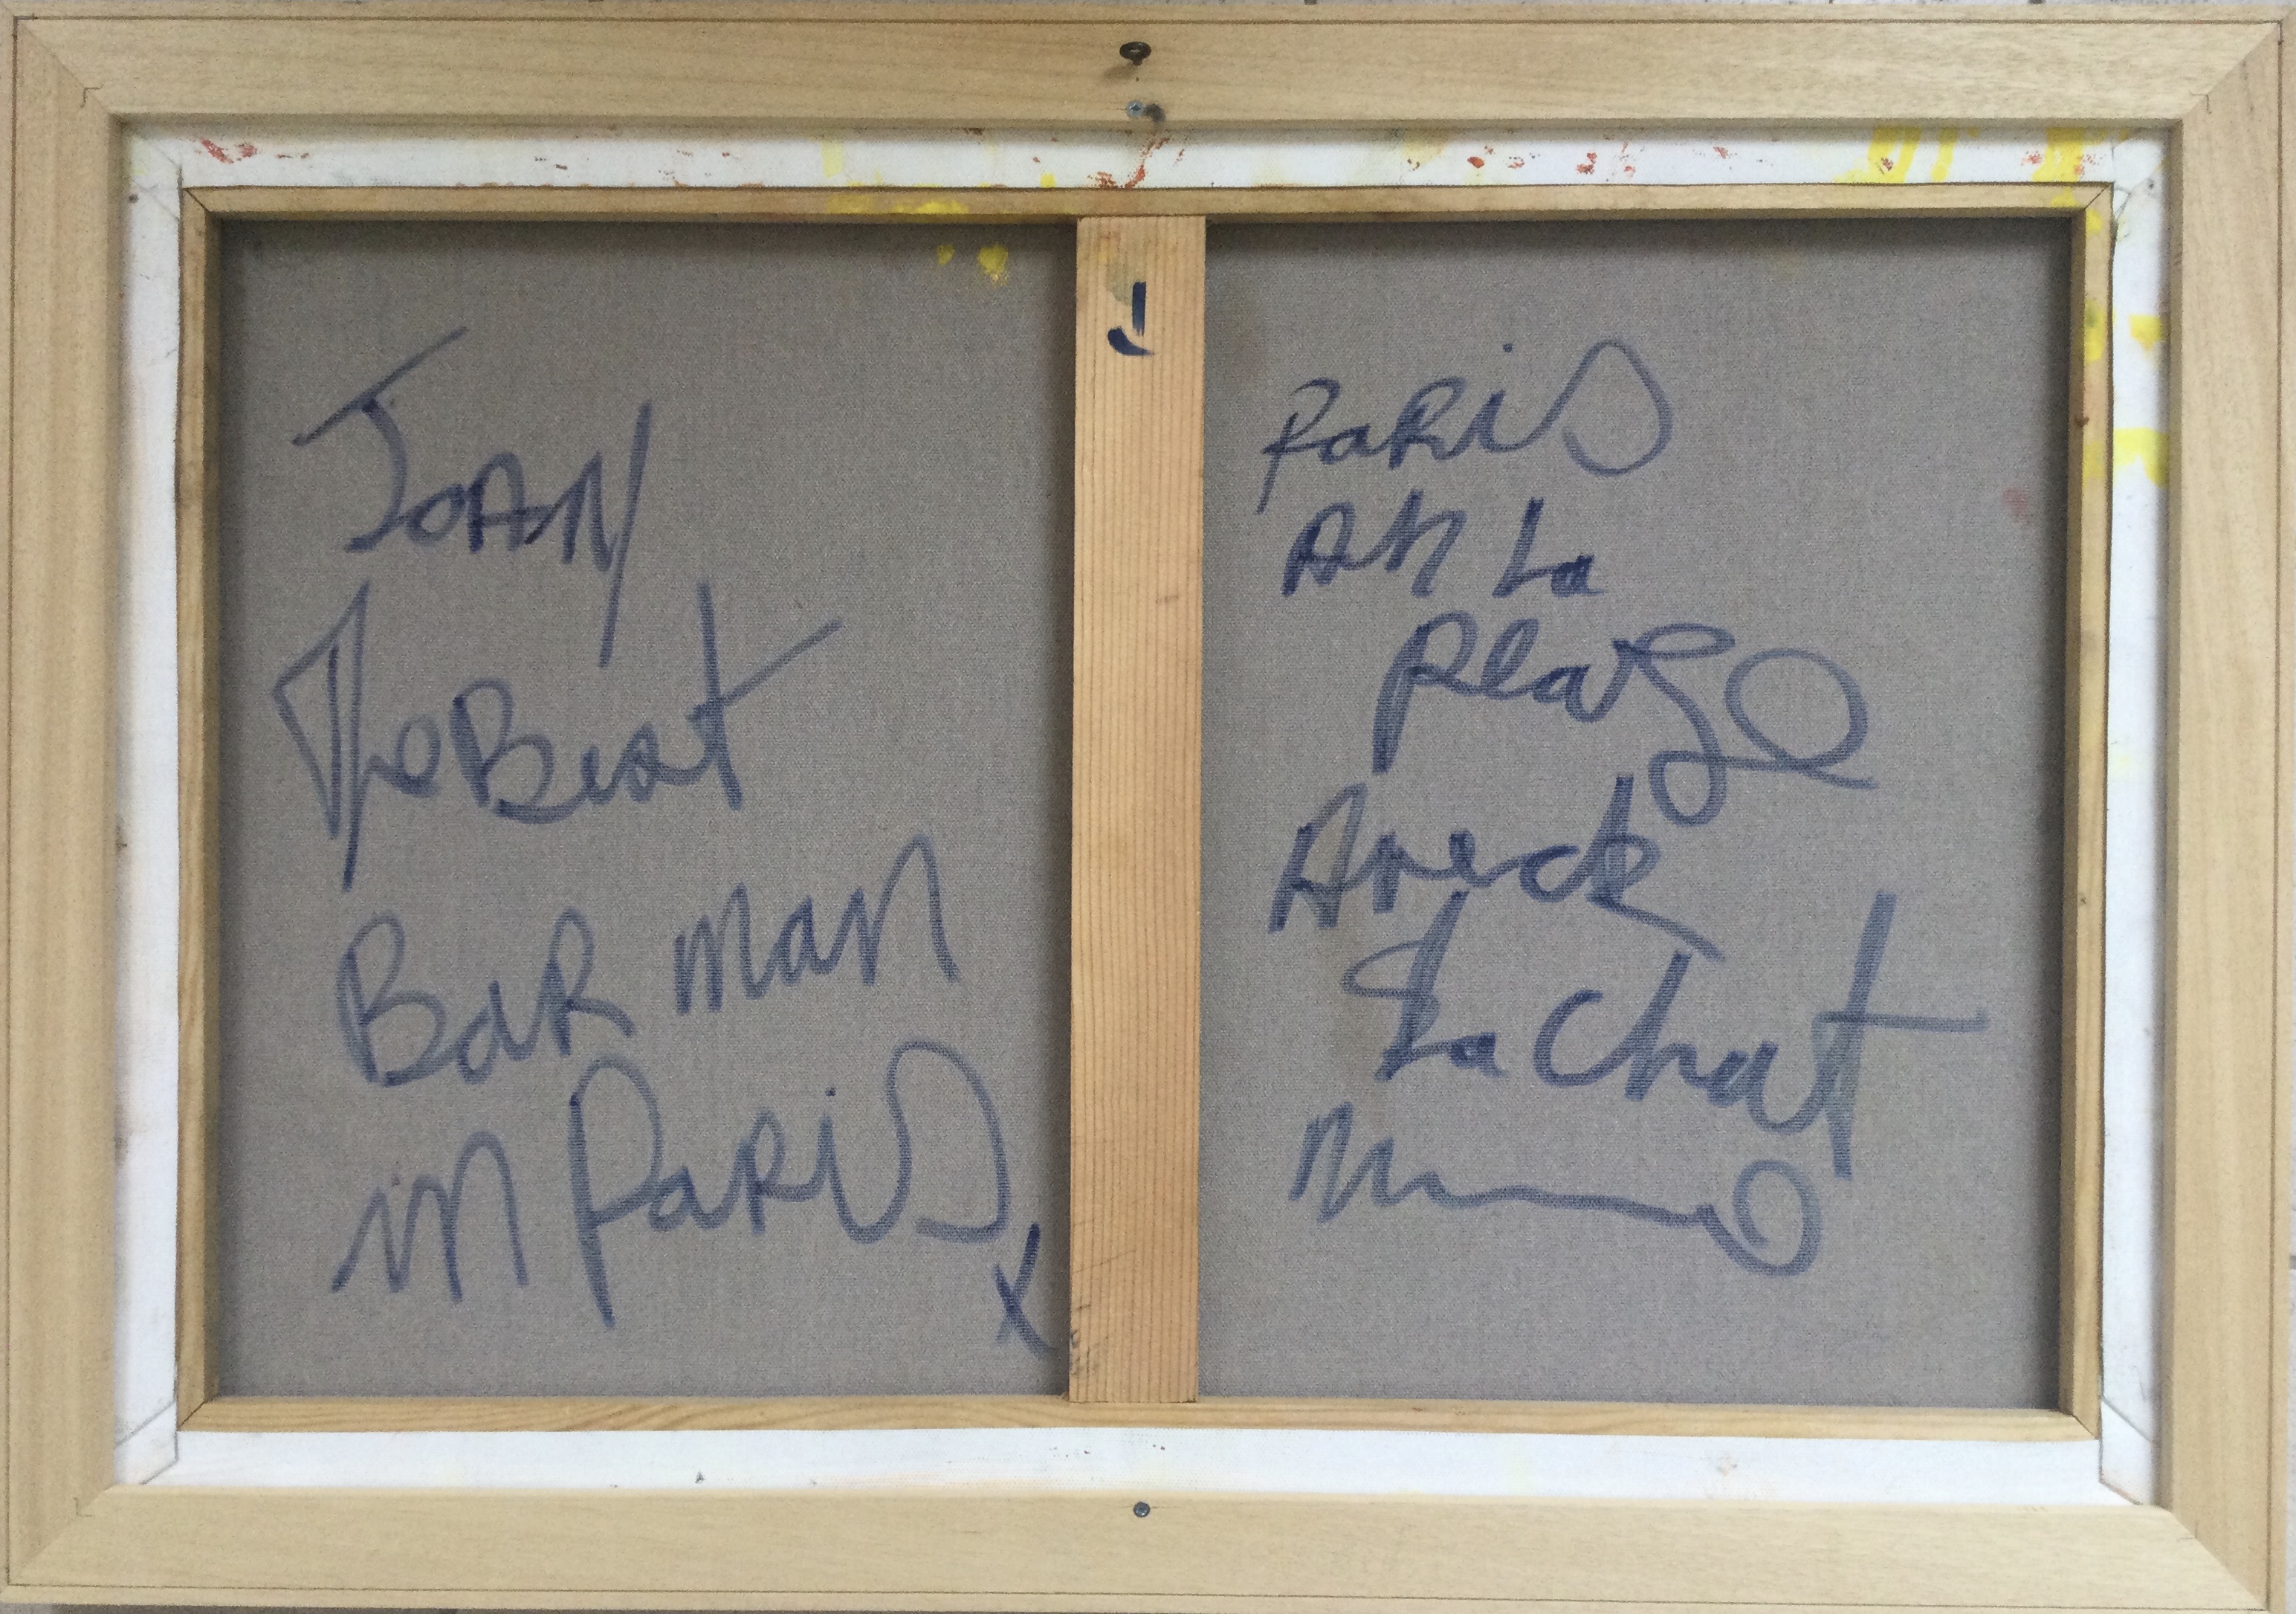 JOAN
The Best
BaR man
in PaRiS
x
J
PaRiS
AH La
Plage
Aveck
La Chat